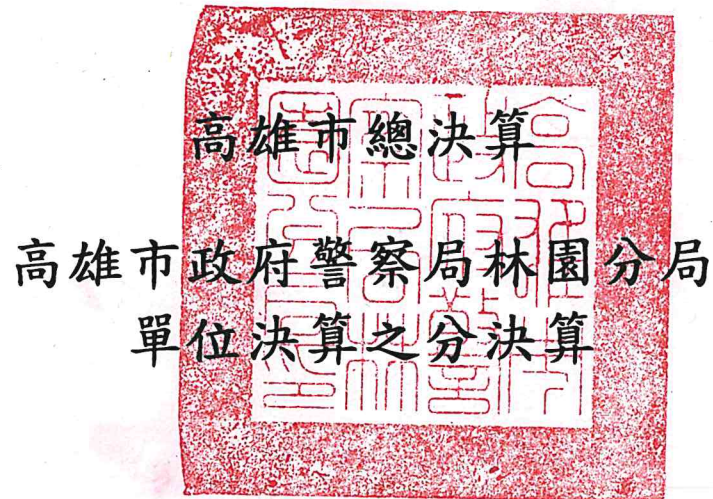 高雄市總決算
高雄市政府警察局林園分局
單位決算之分決算